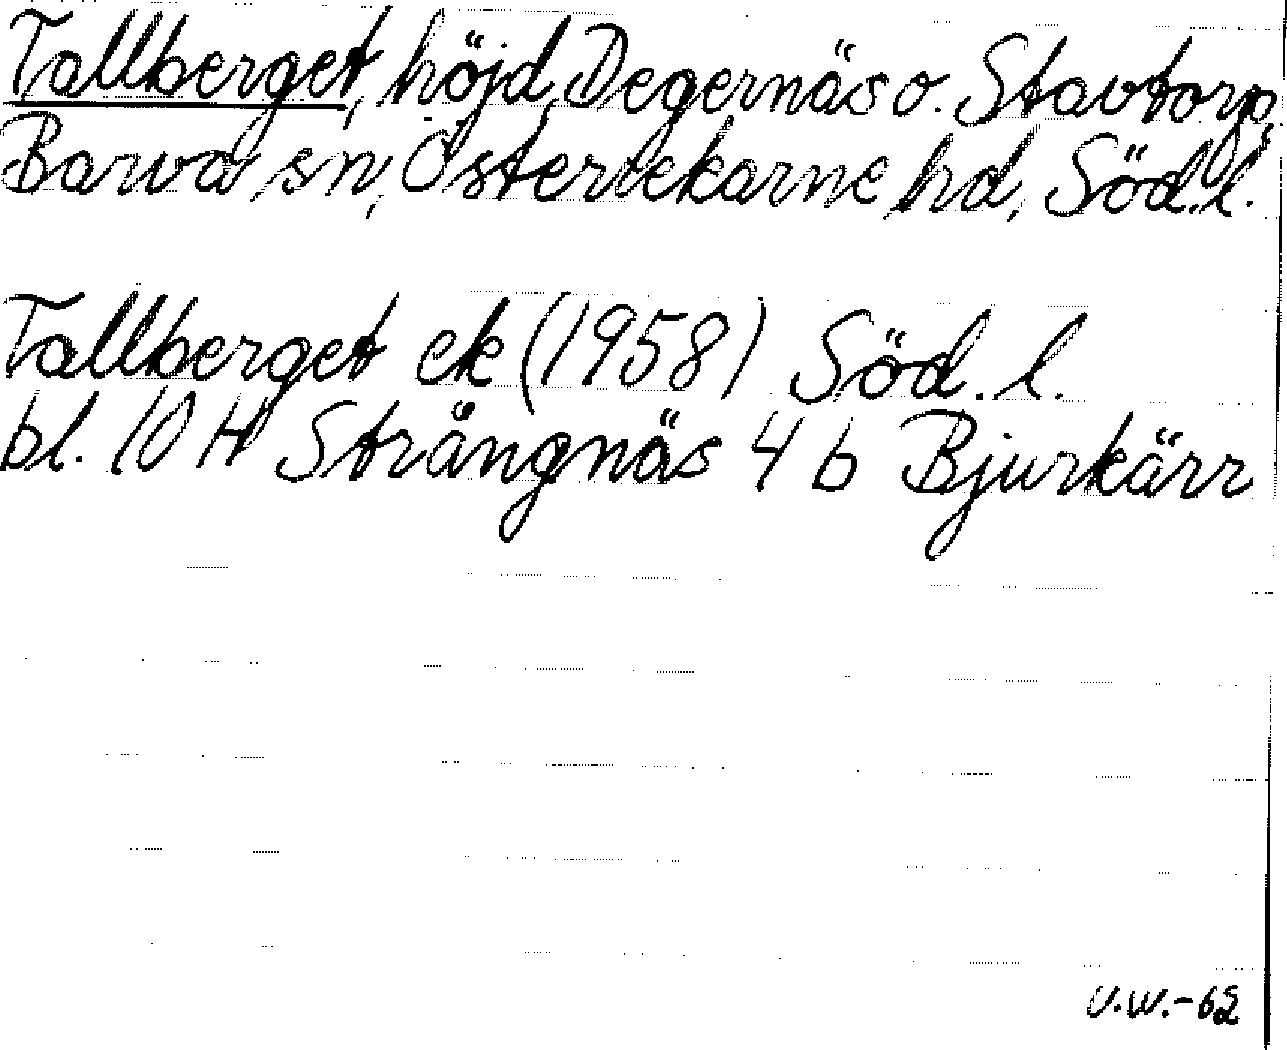 Tallberget, höjd, Degernäs o. Stavtorp,
Barva sn, Österrekarne hd, Söd.l.
Tallberget ek (1958) Söd. l.
bl. 10 H Strängnäs 4 b Bjurkärr
V.W.-62